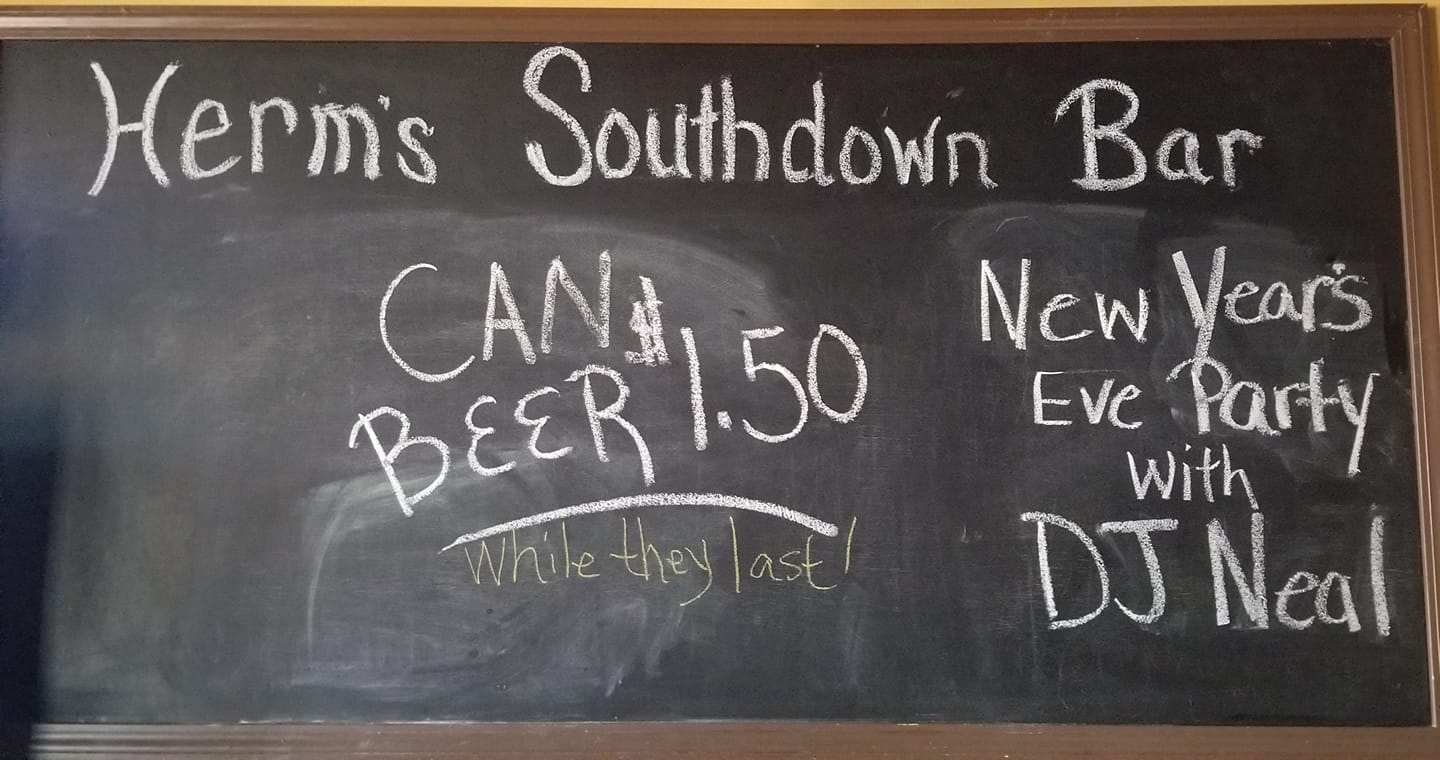 Herm's Southdown Bar
CAN $1.50
BEER
While they last!
New Year's
Eve Party
with
DJ Neal